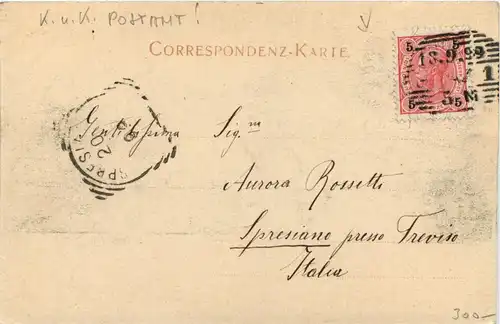 K. u. K. POSTAMT!
CORRESPONDENZ-KARTE.
5 5
18.9.99
1
5 M
5 5
SPRESIA
20
9
Gentilissima Sig.na
Aurora Rossetti
Spresiano presso Treviso
Italia
300-